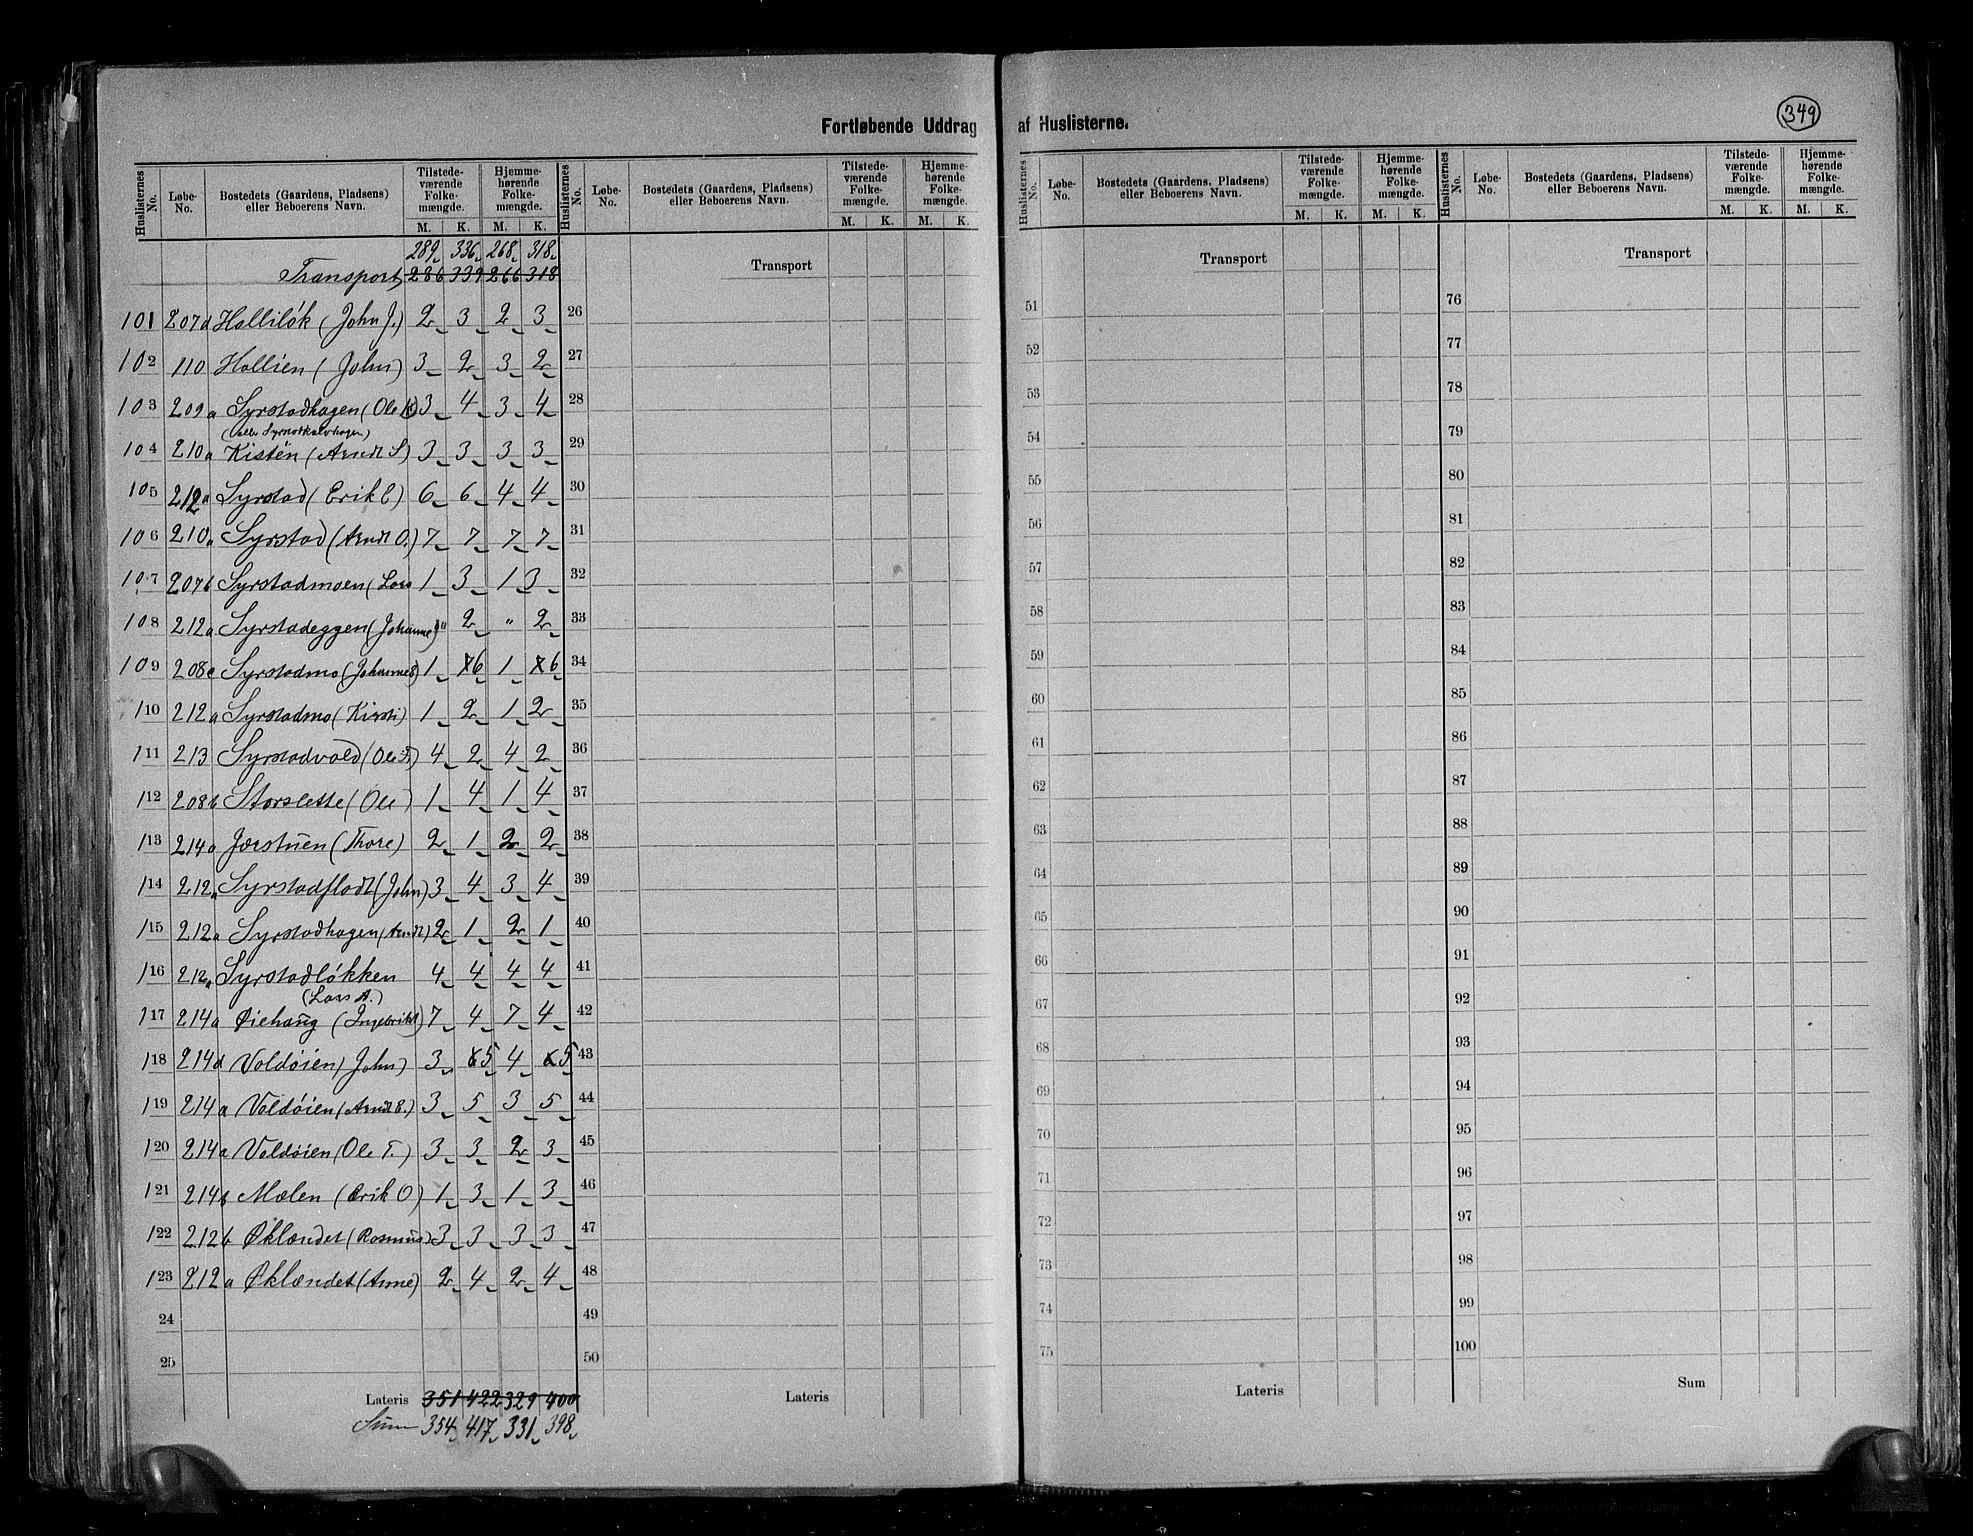 Fortløbende Uddrag af Huslisterne.
349
Huslisternes No. Løbe-No. Bostedets (Gaardens, Pladsens) eller Beboerens Navn. Tilstedeværende Folkemængde. M. K. Hjemmehørende Folkemængde. M. K.
289 336 268 318
Transport 286 339 266 318
101 207d Halliløk (John J.) 2 3 2 3
102 110 Hallien (John) 3 2 3 2
103 209a Syrstadhagen (Ole K) 3 4 3 4
104 210a Kistén (Arndt S) 3 3 3 3
105 212a Syrstad (Erik E) 6 6 4 4
106 210a Syrstad (Arndt O.) 7 7 7 7
107 207b Syrstadmoen (Lars 1 3 1 3
108 212a Syrstadeggen (Johanne) " 2 " 2
109 208c Syrstadmo (Johannes) 1 7 6 1 7 6
110 212a Syrstadmo (Kirsti) 1 2 1 2
111 213 Syrstadvold (Ole T.) 4 2 4 2
112 208b Storslette (Ole) 1 4 1 4
113 214a Jørstuen (Thore) 2 1 2 2
114 212a Syrstadflodt (John) 3 4 3 4
115 212a Syrstadhagen (Arndt) 2 1 2 1
116 212a Syrstadløkken 4 4 4 4
(Lars A.)
117 214a Øiehaug (Ingebrikt) 7 4 7 4
118 214d Voldøien (John) 3 6 5 4 6 5
119 214a Voldøien (Arndt E.) 3 5 3 5
120 214a Voldøien (Ole T.) 3 3 2 3
121 214b Mælen (Erik O) 1 3 1 3
122 212b Øklændet (Rasmus) 3 3 3 3
123 212a Øklændet (Anne) 2 4 2 4
24
25
Lateris 351 422 329 400
Sum 354 417 331 398
Huslisternes No. Løbe-No. Bostedets (Gaardens, Pladsens) eller Beboerens Navn. Tilstedeværende Folkemængde. M. K. Hjemmehørende Folkemængde. M. K.
Transport
26
27
28
29
30
31
32
33
34
35
36
37
38
39
40
41
42
43
44
45
46
47
48
49
50
Lateris
Huslisternes No. Løbe-No. Bostedets (Gaardens, Pladsens) eller Beboerens Navn. Tilstedeværende Folkemængde. M. K. Hjemmehørende Folkemængde. M. K.
Transport
51
52
53
54
55
56
57
58
59
60
61
62
63
64
65
66
67
68
69
70
71
72
73
74
75
Lateris
Huslisternes No. Løbe-No. Bostedets (Gaardens, Pladsens) eller Beboerens Navn. Tilstedeværende Folkemængde. M. K. Hjemmehørende Folkemængde. M. K.
Transport
76
77
78
79
80
81
82
83
84
85
86
87
88
89
90
91
92
93
94
95
96
97
98
99
100
Sum